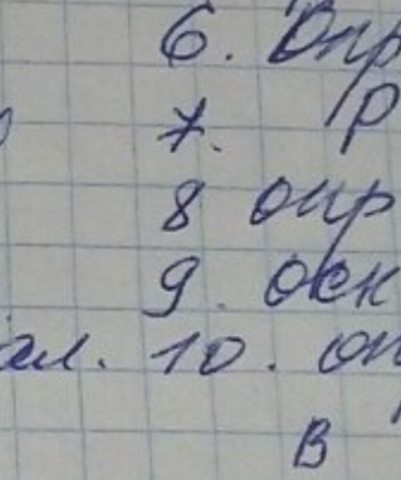 6. Опр
7. Р
8 опр
9. оск
ал. 10. оп
В